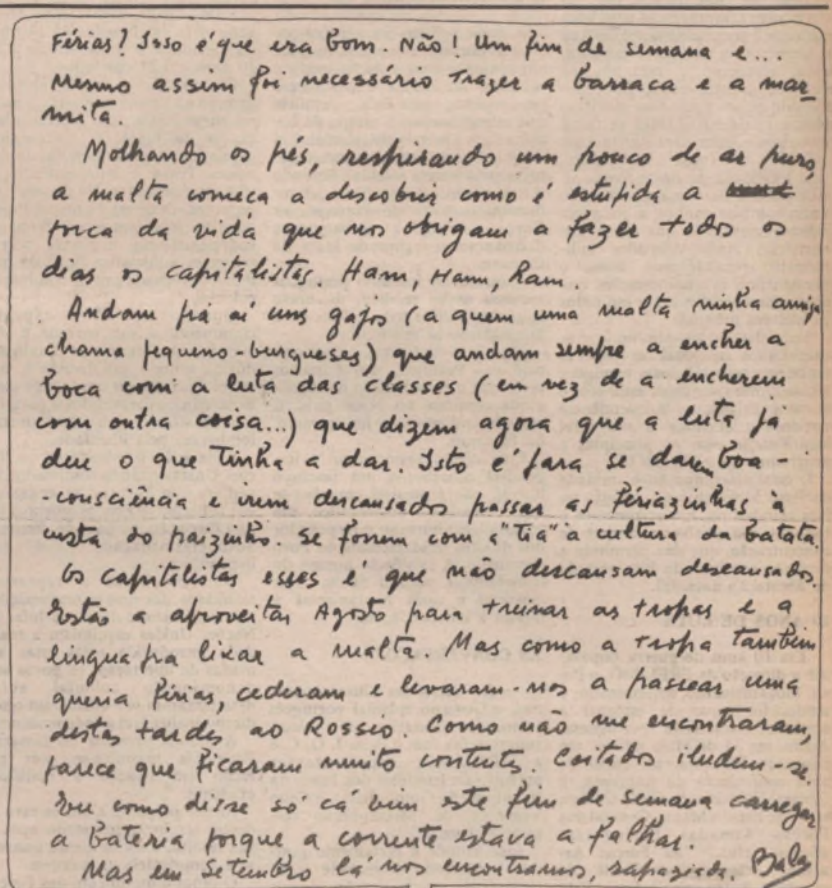 Férias? Isso é que era bom. Não! Um fim de semana e...
mesmo assim foi necessário trazer a barraca e a mar-
mita.
Molhando os pés, respirando um pouco de ar puro,
a malta começa a descobrir como é estúpida a
porca da vida que nos obrigam a fazer todos os
dias os capitalistas. Ham, Ham, Ham.
Andam prá aí uns gajos (a quem uma malta minha amiga
chama pequeno-burgueses) que andam sempre a encher a
boca com a luta das classes (em vez de a encherem
com outra coisa...) que dizem agora que a luta já
deu o que tinha a dar. Isto é para se darem boa-
-consciência e irem descansados passar as fériazinhas à
custa do paizinho. Se fossem com a "tia" à cultura da batata.
Os capitalistas esses é que não descansam descansados.
Estão a aproveitar Agosto para treinar as tropas e a
lingua pra lixar a malta. Mas como a tropa também
queria férias, cederam e levaram-nos a passear uma
destas tardes ao Rossio. Como não me encontraram,
parece que ficaram muito contentes. Coitados iludem-se.
Eu como disse só cá vim este fim de semana carregar
a bateria porque a corrente estava a falhar.
Mas em Setembro lá nos encontramos, rapaziada.